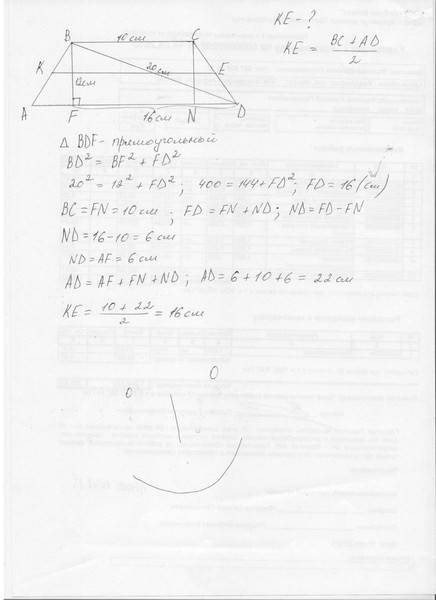 KE - ?
KE = BC + AD / 2
B 10 см C
K 12 см 20 см E
A F 16 см N D
Δ BDF - прямоугольный
BD² = BF² + FD²
20² = 12² + FD² ; 400 = 144 + FD² ; FD = 16 (см)
BC = FN = 10 см ; FD = FN + ND ; ND = FD - FN
ND = 16 - 10 = 6 см
ND = AF = 6 см
AD = AF + FN + ND ; AD = 6 + 10 + 6 = 22 см
KE = 10 + 22 / 2 = 16 см